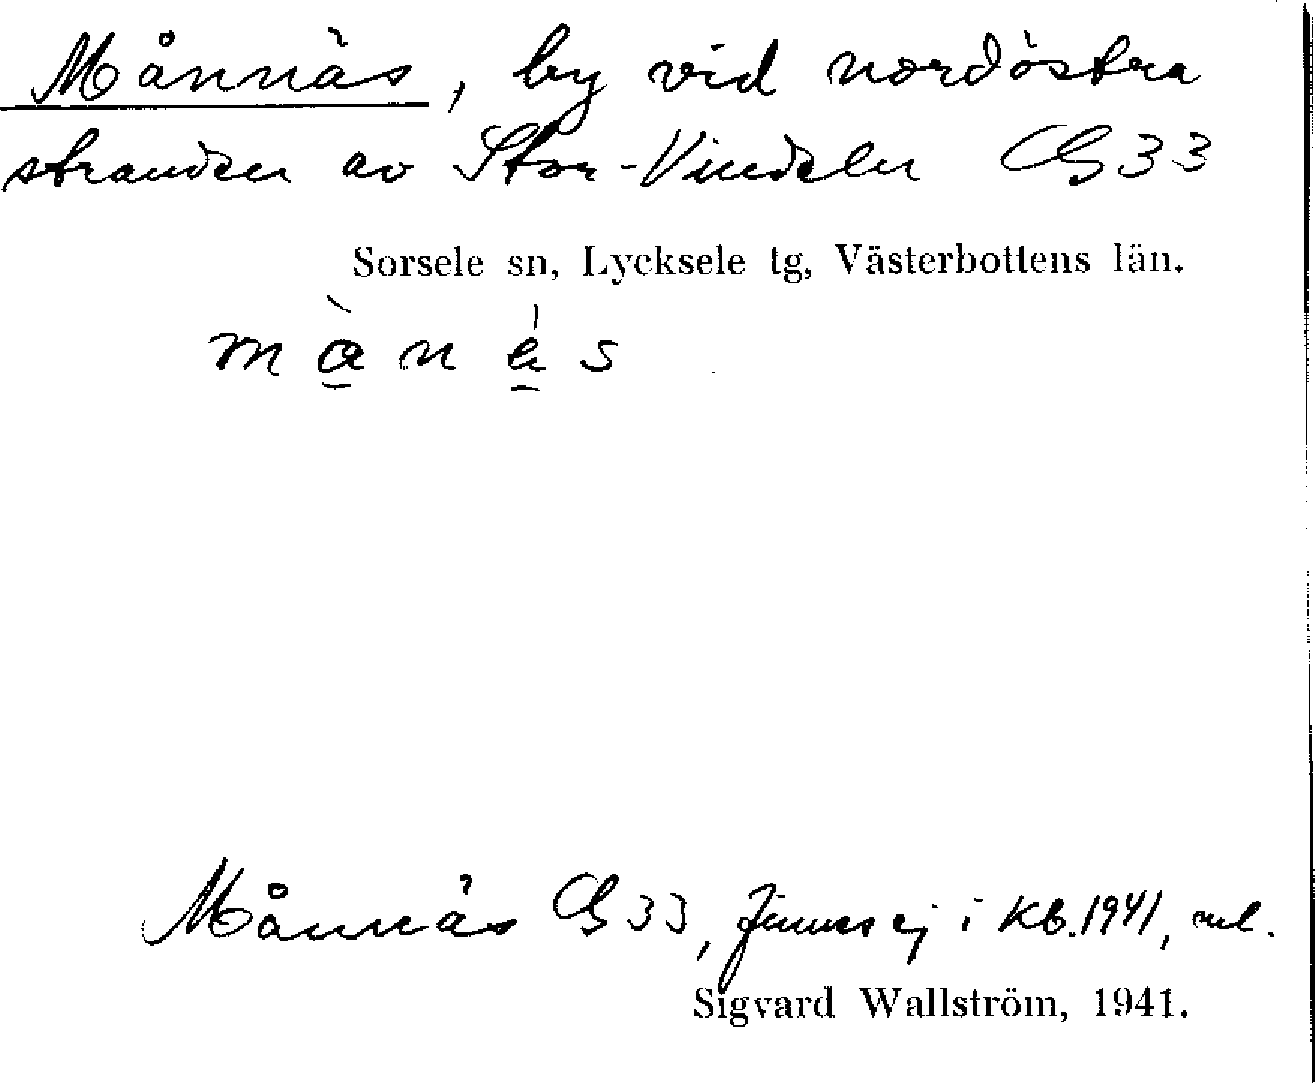 Månnäs, by vid nordöstra
stranden av Stor-Vindeln GS 33
Sorsele sn, Lycksele tg, Västerbottens län.
Månnäs GS 33, finnes ej i Kb. 1941, ml.
Sigvard Wallström, 1941.